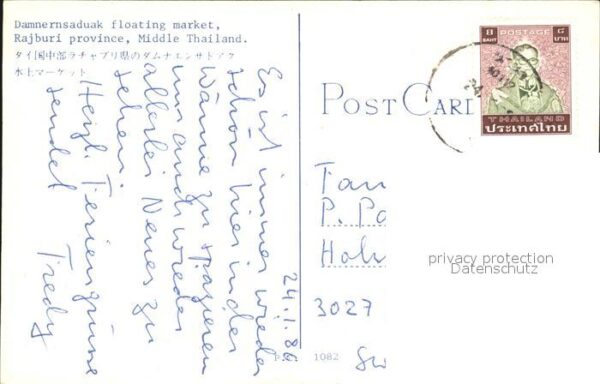 Damnernsaduak floating market,
Rajburi province, Middle Thailand.
タイ国中部ラチャブリ県のダムナエンサドアク
水上マーケット
24.1.86
Es ist immer wieder
schön hier in der
Wärme zu spazieren
nur auch wieder
allerlei Neues zu
sehen.
Herzl. Feriengrüsse
sendet Fredy
POST CARD
8 POSTAGE ๘
BAHT บาท
THAILAND
ประเทศไทย
Fam
P. Pa
Hal
3027
privacy protection
Datenschutz
1082